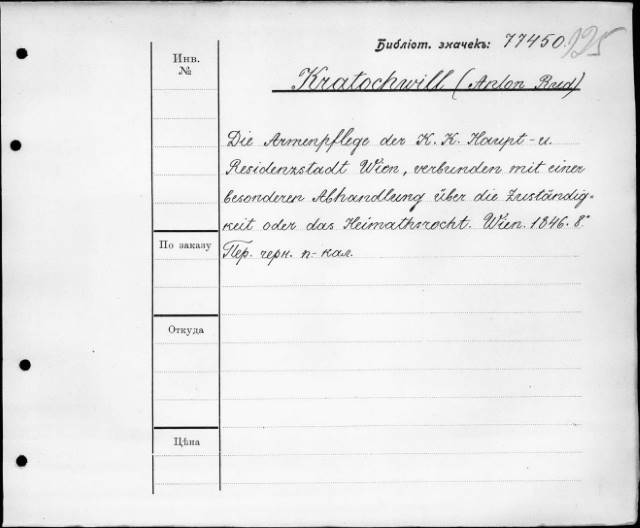 Библіот. значекъ: 77450. 125
Инв.
№
Kratochwill (Anton Rud)
Die Armenpflege der K. K. Haupt- u.
Residenzstadt Wien, verbunden mit einer
besonderen Abhandlung über die Zuständig-
keit oder das Heimathsrecht. Wien. 1846. 8°
По заказу
Пер. черн. п-кал.
Откуда
Цѣна